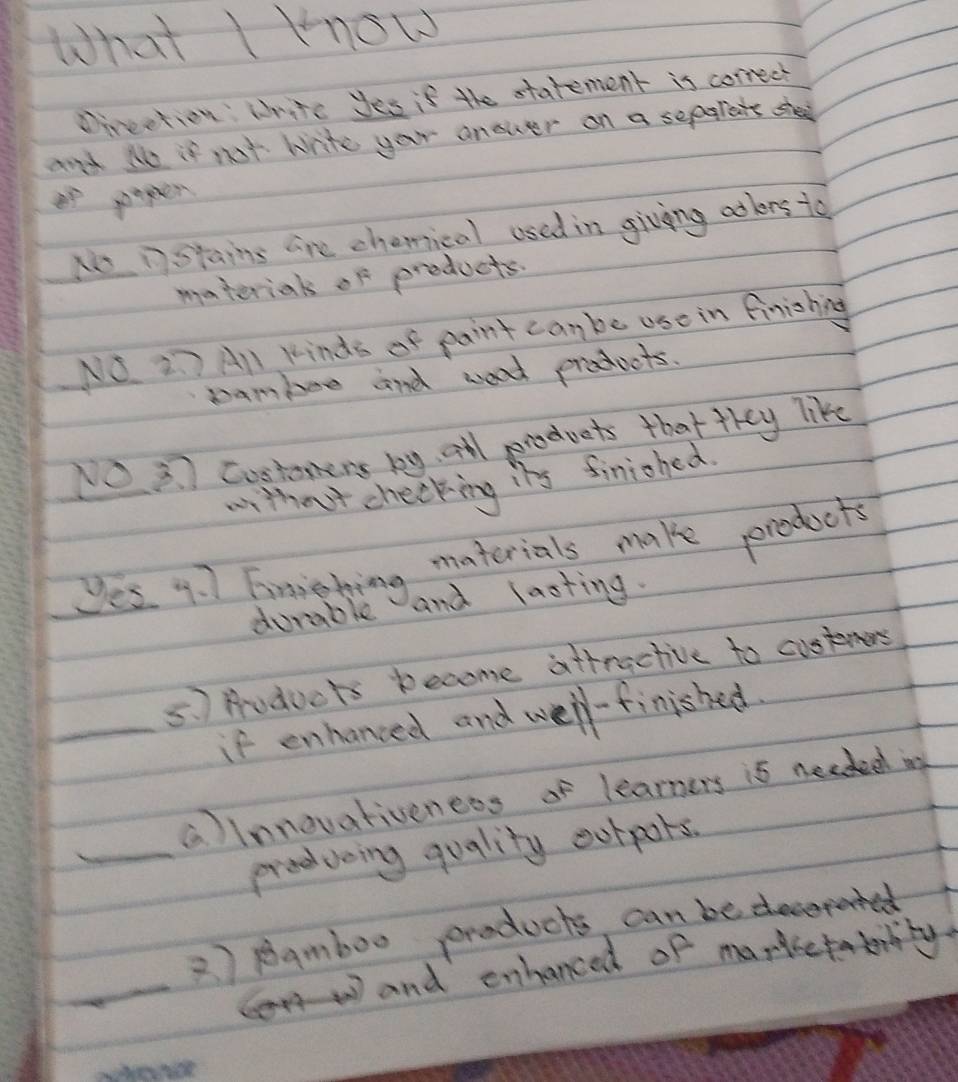 What I Know
Direction: Write Yes if the statement is correct
and No if not. Write your answer on a separate sheet
of paper.
No 1.) Stains are chemical used in giving colors to
materials of products.
NO 2.) All kinds of paint can be use in finishing
bamboo and wood products.
NO 3.) Costomers by all products that they like
without checking its finished.
Yes 4.) Finishing materials make products
durable and lasting.
5.) Products become attractive to customers
if enhanced and well-finished.
6.) Innovativeness of learners is needed in
producing quality outputs.
7.) Bamboo products can be decorated
and enhanced of marketability